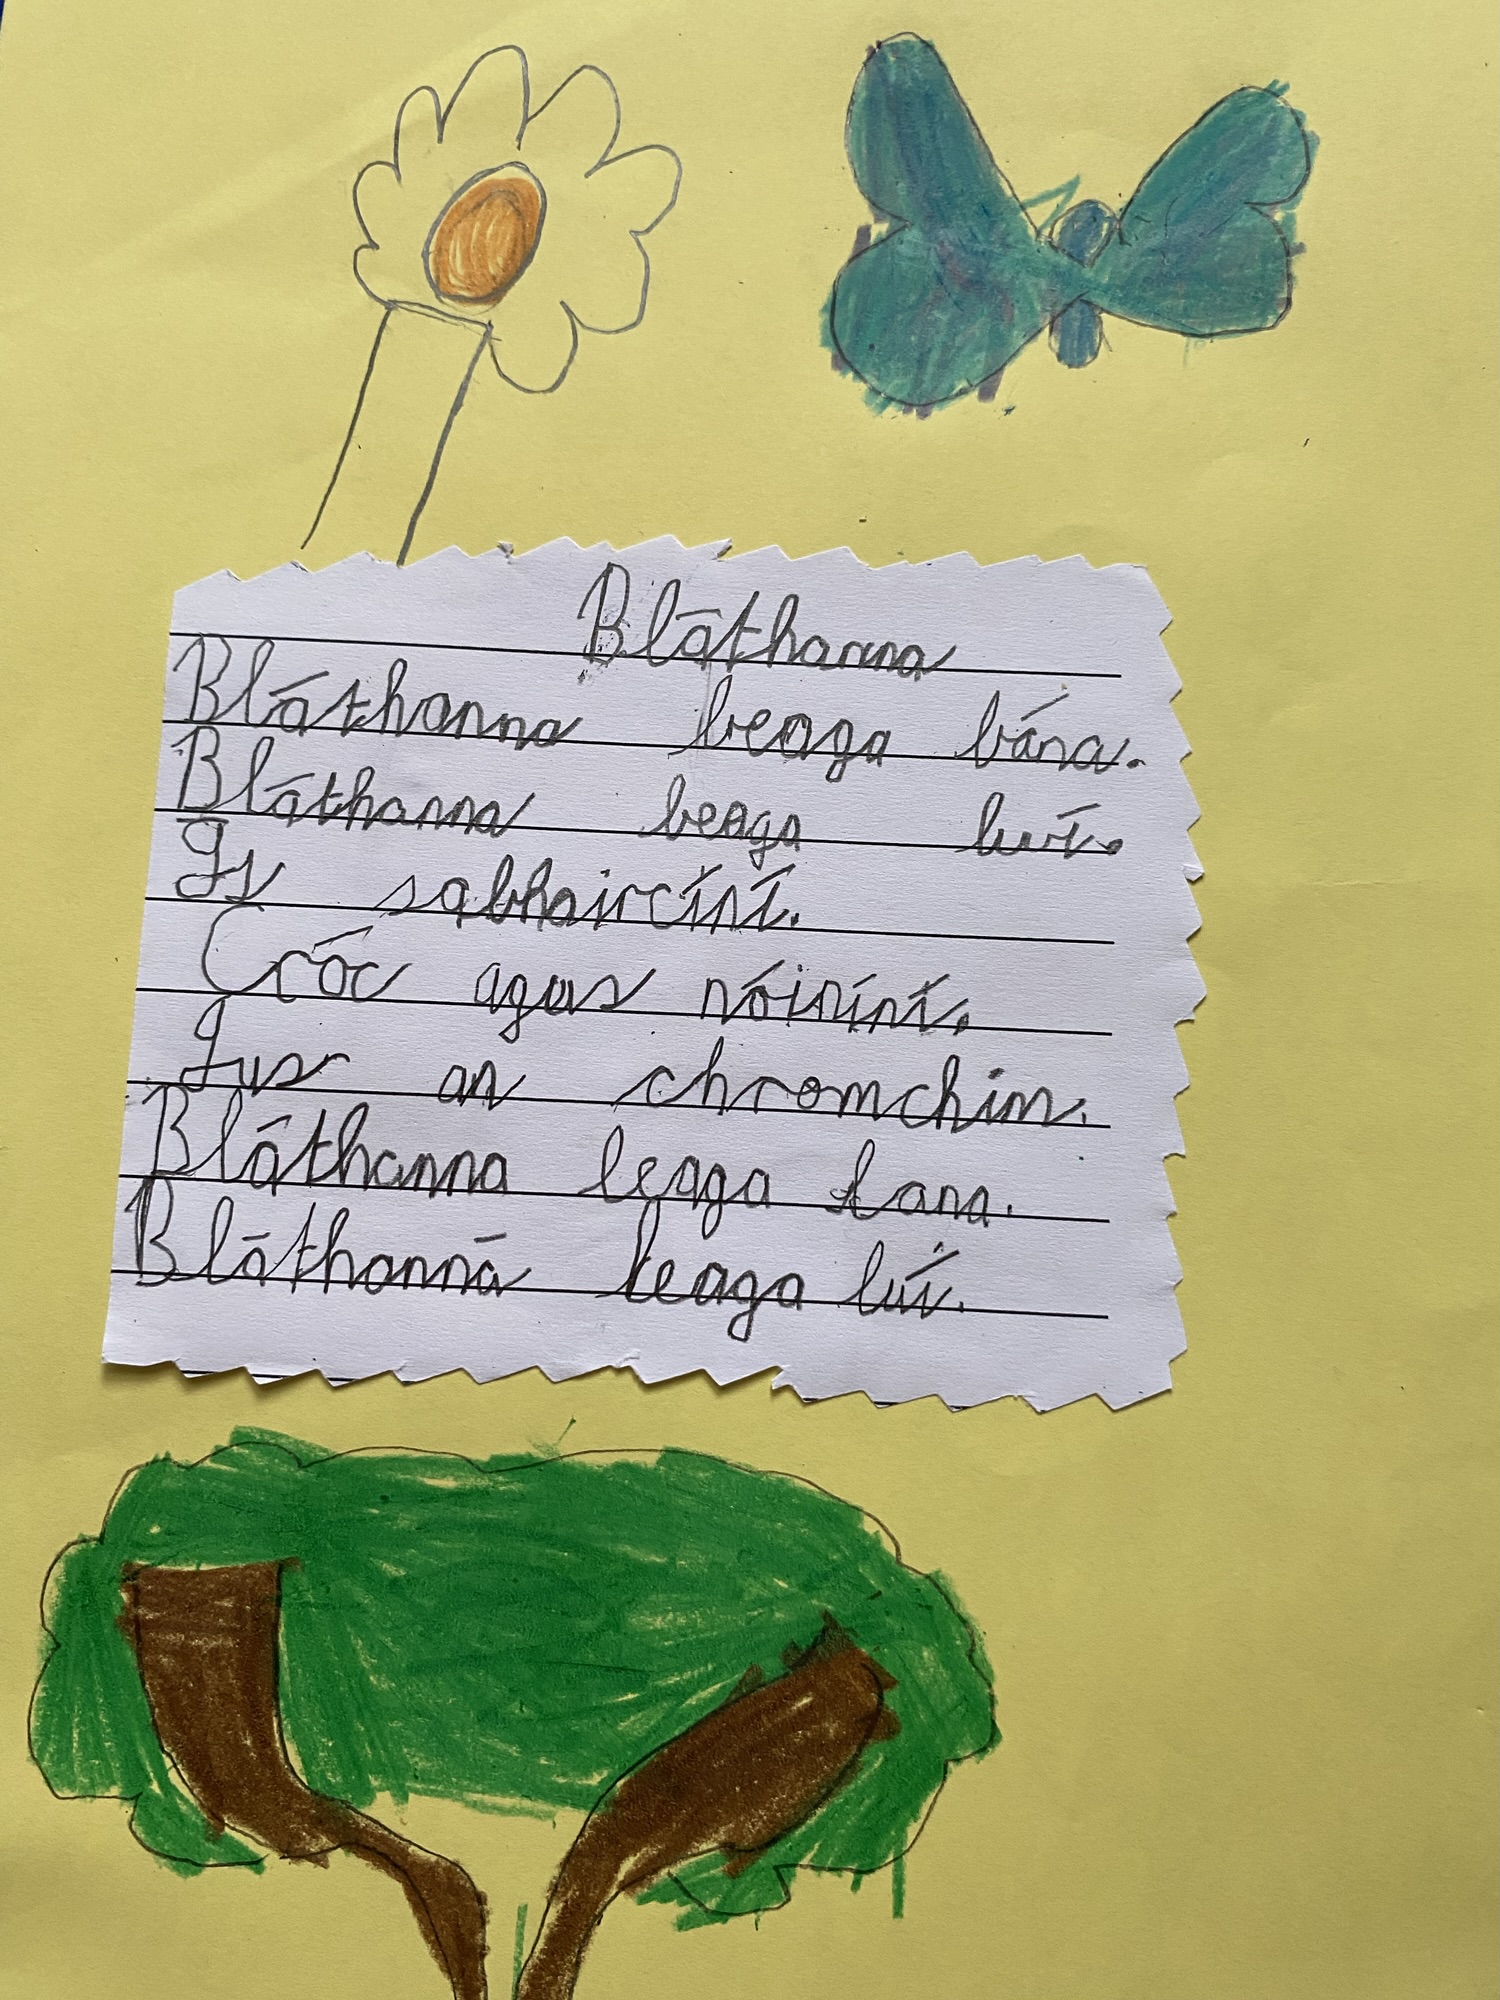 Bláthanna
Bláthanna beaga bána.
Bláthanna beaga buí.
Is sabhaircíní.
Cróc agus nóiníní.
Gus an chromchinn.
Bláthanna beaga bana.
Bláthanná beaga buí.